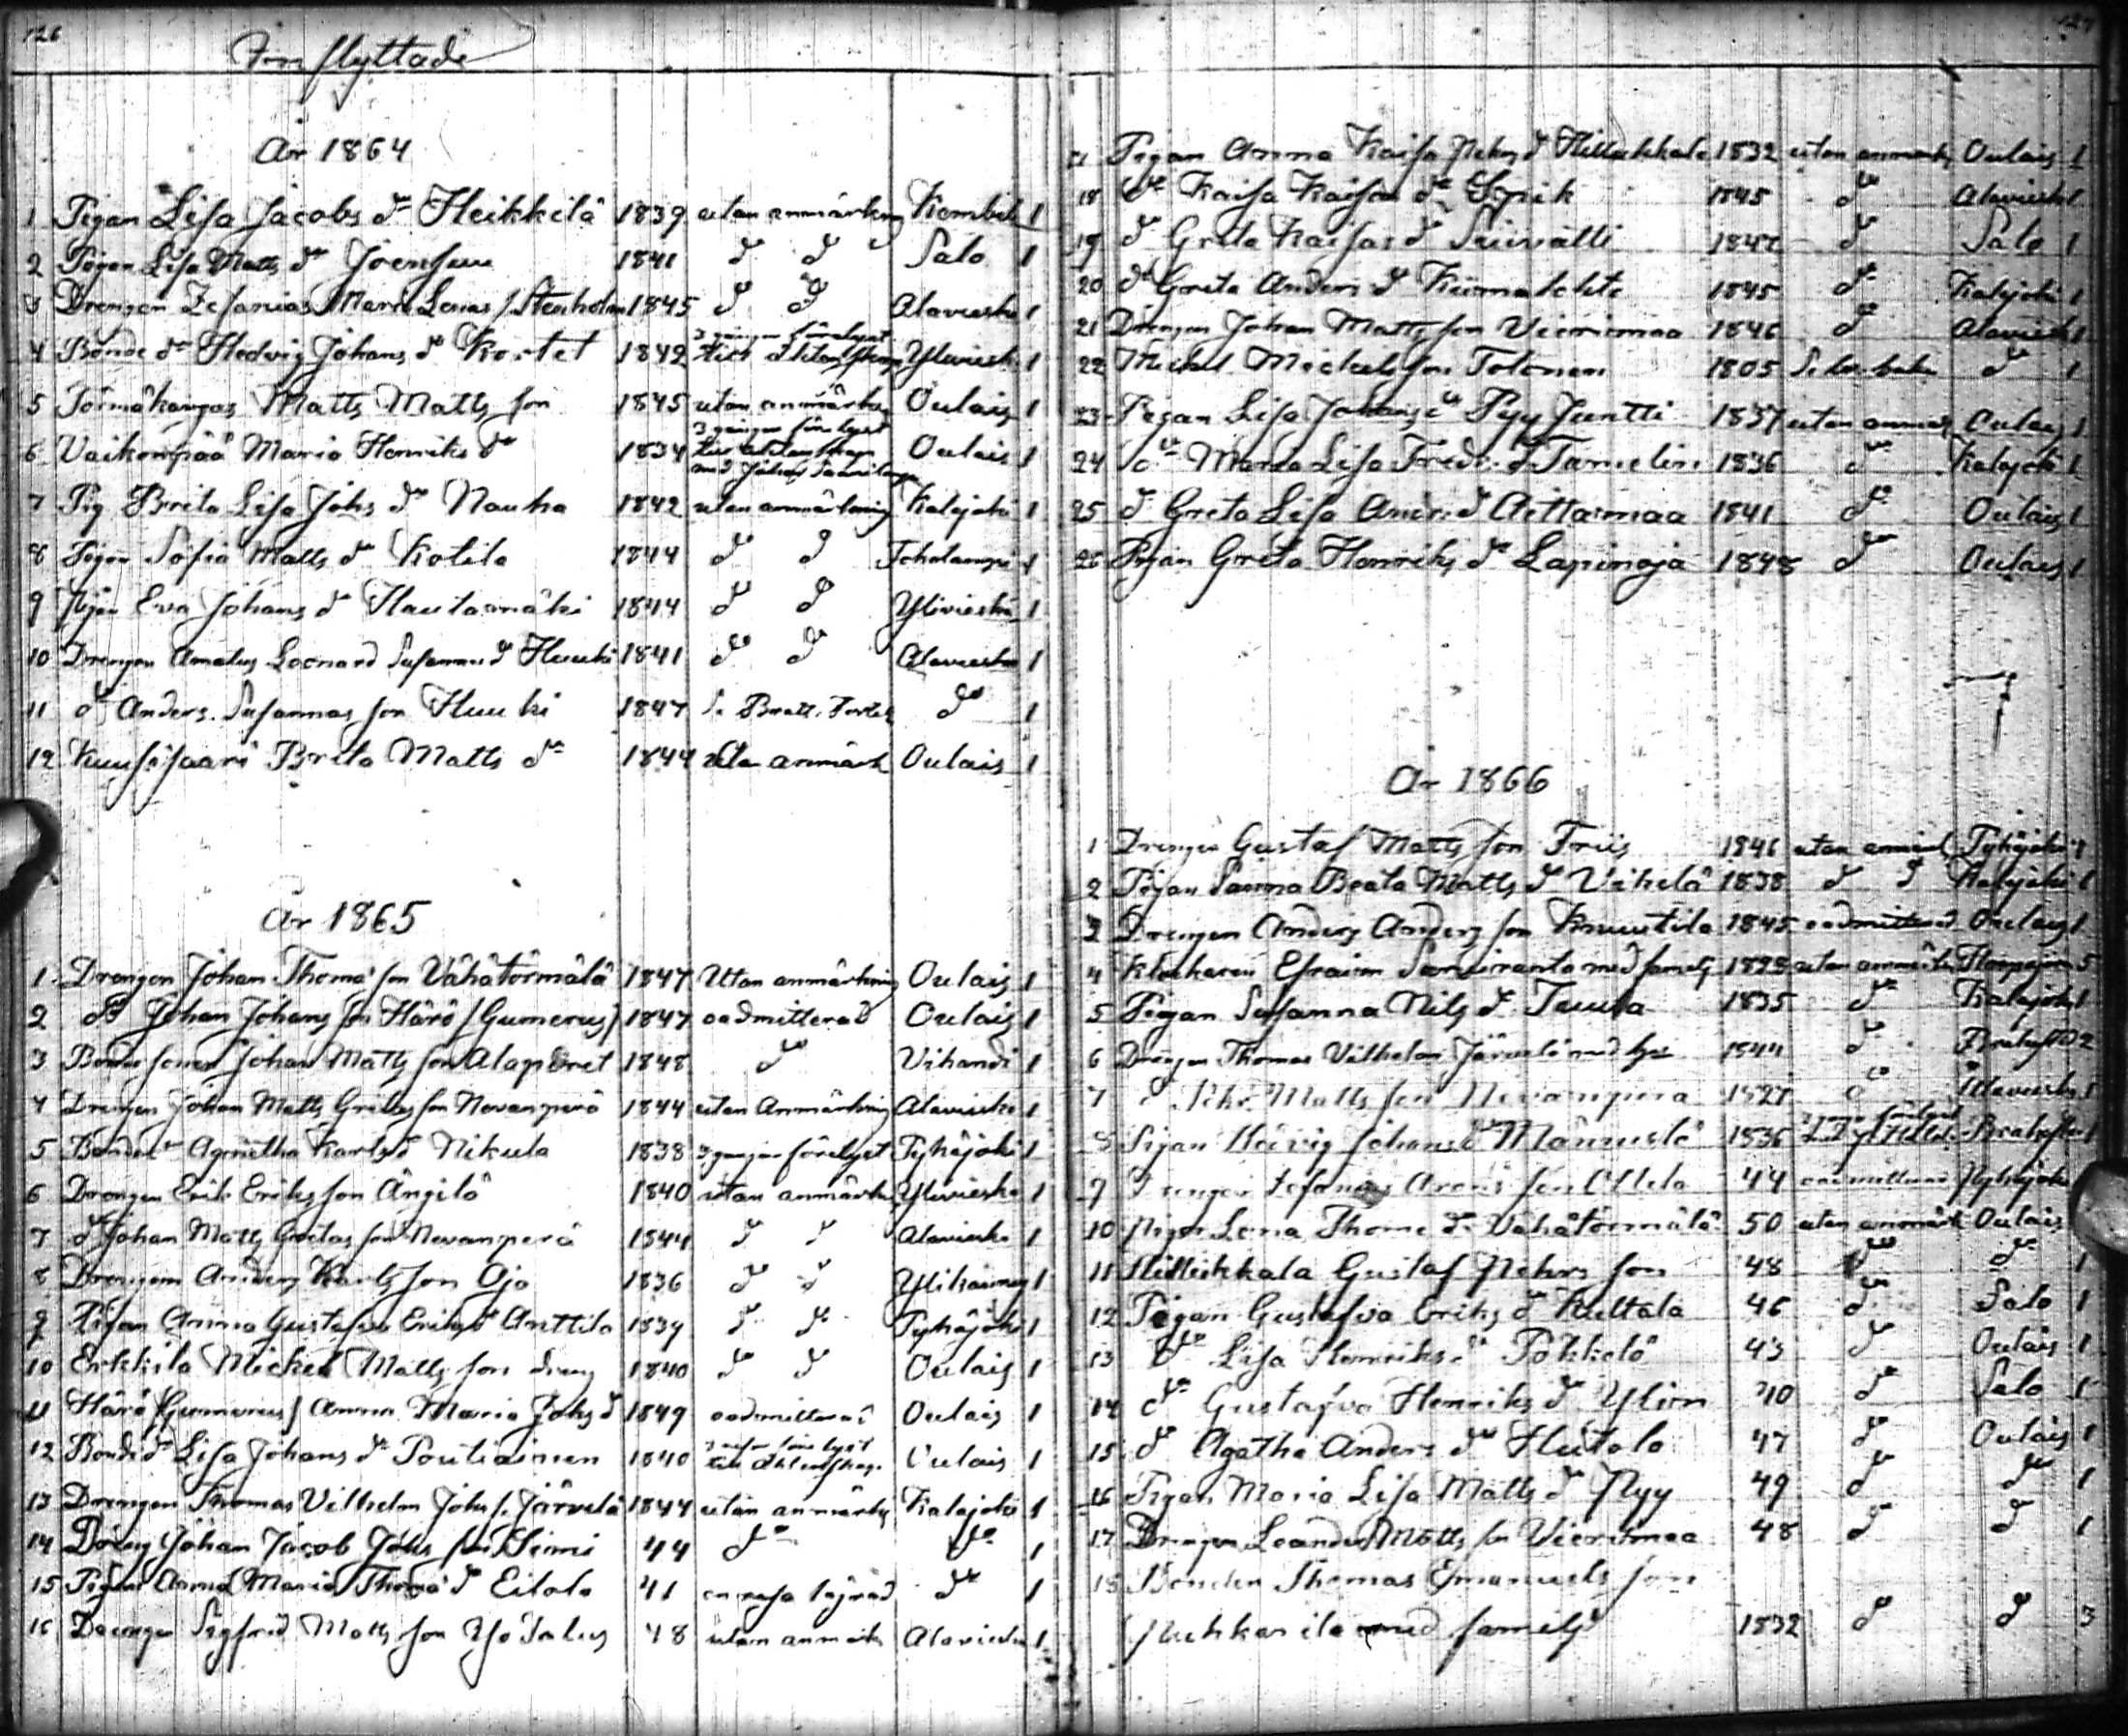 126
Inflyttade
År 1864
1 Pigan Lisa Jacobs dr Heikkilä 1839 utan anmärkning 1
2 Pigan Lisa Matts dr Joensuu 1841 do do Salo 1
3 Drengen Zefanias Maria Lenas s. Stenholm 1845 do do Alavieska 1
4 Bonde dr Hedvig Johans dr Kortet 1842 3 gånger förelyst till äktenskap Ylivieska 1
5 Törmäkangas Matts Matts son 1845 utan anmärkn Oulais 1
6 Vaikonpää Maria Henriks dr 1834 3 gånger förelyst till äktenskap med Johan Oulais 1
7 Pig Brita Lisa Johs dr Nauha 1842 utan anmärkning Kalajoki 1
8 Pigan Sofia Matts dr Kotila 1844 do do Toholampi 1
9 Pigan Eva Johans dr Hautamäki 1844 do do Ylivieska 1
10 Drengen Amalus Leonard Susannas Huuki 1841 do do Alavieska 1
11 do Anders Susannas son Huuki 1847 do 1
12 Kuusisaari Brita Matts dr 1844 utan anmärk Oulais 1
År 1865
1 Drengen Johan Thoma son Vähätörmälä 1847 Utan anmärkning Oulais 1
2 do Johan Johans son Härö (Gumerus) 1847 oadmitterad Oulais 1
3 Bonde sonen Johan Matts son Alaperet 1848 do Vihandi 1
4 Drengen Johan Matts Gretas son Nevanperä 1844 utan Anmärkning Alavieska 1
5 Bonde dr Agnetha Karls dr Nikula 1838 3 gånger förelyst Pyhäjoki 1
6 Drengen Erik Eriks son Ängilö 1840 utan anmärkn Ylivieska 1
7 do Johan Matts Gretas son Nevanperä 1844 do do Alavieska 1
8 Drengen Anders Karls son Oja 1836 do do 1
9 Pigan Anna Gustafva Eriks dr Anttila 1839 do do Pyhäjoki 1
10 Erkkilä Mickel Matts son dreng 1840 do do Oulais 1
11 Härö (Gumerus) Anna Maria Johs d 1849 oadmitterad Oulais 1
12 Bonde dr Lisa Johans dr Poutiainen 1840 3 förelyst till äktenskap Oulais 1
13 Drengen Thomas Vilhelm Johs s. Järvelä 1844 utan anmärkn Kalajoki 1
14 Dreng Johan Jacob Johs son Siimi 44 do do 1
15 Pigan Anna Maria Thoma dr Eilola 41 en resa lägrad do 1
16 Drengen Sigfrid Matts son 48 utan anmärk Alavieska 1
127
Pigan Anna Kaisa Pehrs d Hillukkala 1832 utan anmärk Oulais 1
18 do Kaisa Kaisas dr 1845 do Alavieska 1
19 do Greta Kaisas d 1847 do Salo 1
20 do Greta Anders d 1845 do Kalajoki 1
21 Drengen Johan Matts son Vierimaa 1846 do Alavieska 1
22 Mickel Mickels son Tolonen 1805 do 1
23 Pigan Lisa Johans dr Pyy Juntti 1837 utan anmärk Oulais 1
24 do Maria Lisa Fredr. d Tamelin 1836 do Kalajoki 1
25 do Greta Lisa Anders d Aittamaa 1841 do Oulais 1
26 Pigan Greta Henriks dr Lapinoja 1848 do Oulais 1
År 1866
1 Drengen Gustaf Matts son Friis 1846 utan anmärk Pyhäjoki 1
2 Pigan Sanna Beata Matts d Vikelä 1838 do do Kalajoki 1
3 Drengen Anders Anders son Knuutila 1845 oadmitterad Oulais 1
4 Klockaren Efraim med familj utan anmärkn Haapajärvi 5
5 Pigan Susanna Nils dr 1835 do Kalajoki 1
6 Drengen Thomas Vilhelm Järvelä med hus 1844 do Brahestad 2
7 do Matts son Nevanperä 1827 do Alavieska
8 Pigan Hedvig Johans dr 1836 Brahestad
9 Drengen Zefanias son 44 oadmitterad Pyhäjoki
10 Pigan Lena Thoma dr Vähätörmälä 50 utan anmärk Oulais
11 Hillukkala Gustaf Pehrs son 48 do do 1
12 Pigan Gustafva Eriks d Kultala 46 do Salo 1
13 do Lisa Henriks dr Pökkelö 43 do Oulais 1
14 do Gustafva Henriks dr 40 do Salo 1
15 do Agatha Anders dr 47 do Oulais 1
16 Pigan Maria Lisa Matts d Pyy 49 do do 1
17 Drengen Leander Matts son Vierimaa 48 do do 1
18 Bonden Thomas Emanuels son
med familj 1832 do do 3